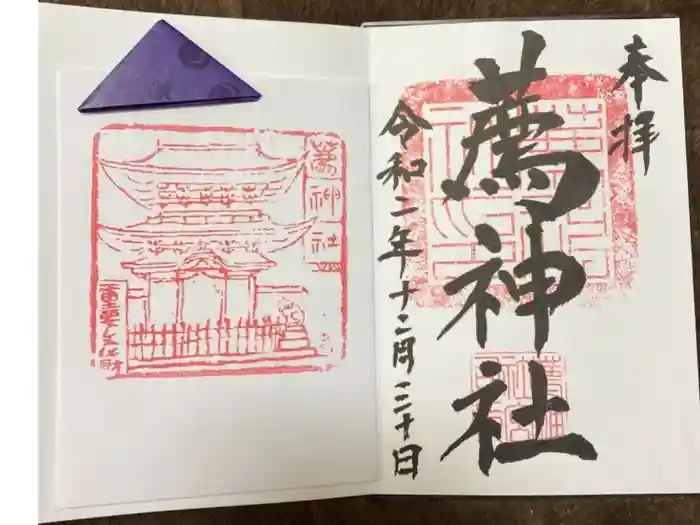 奉拝
薦神社
令和二年十二月三十日
薦神社
重要文化財